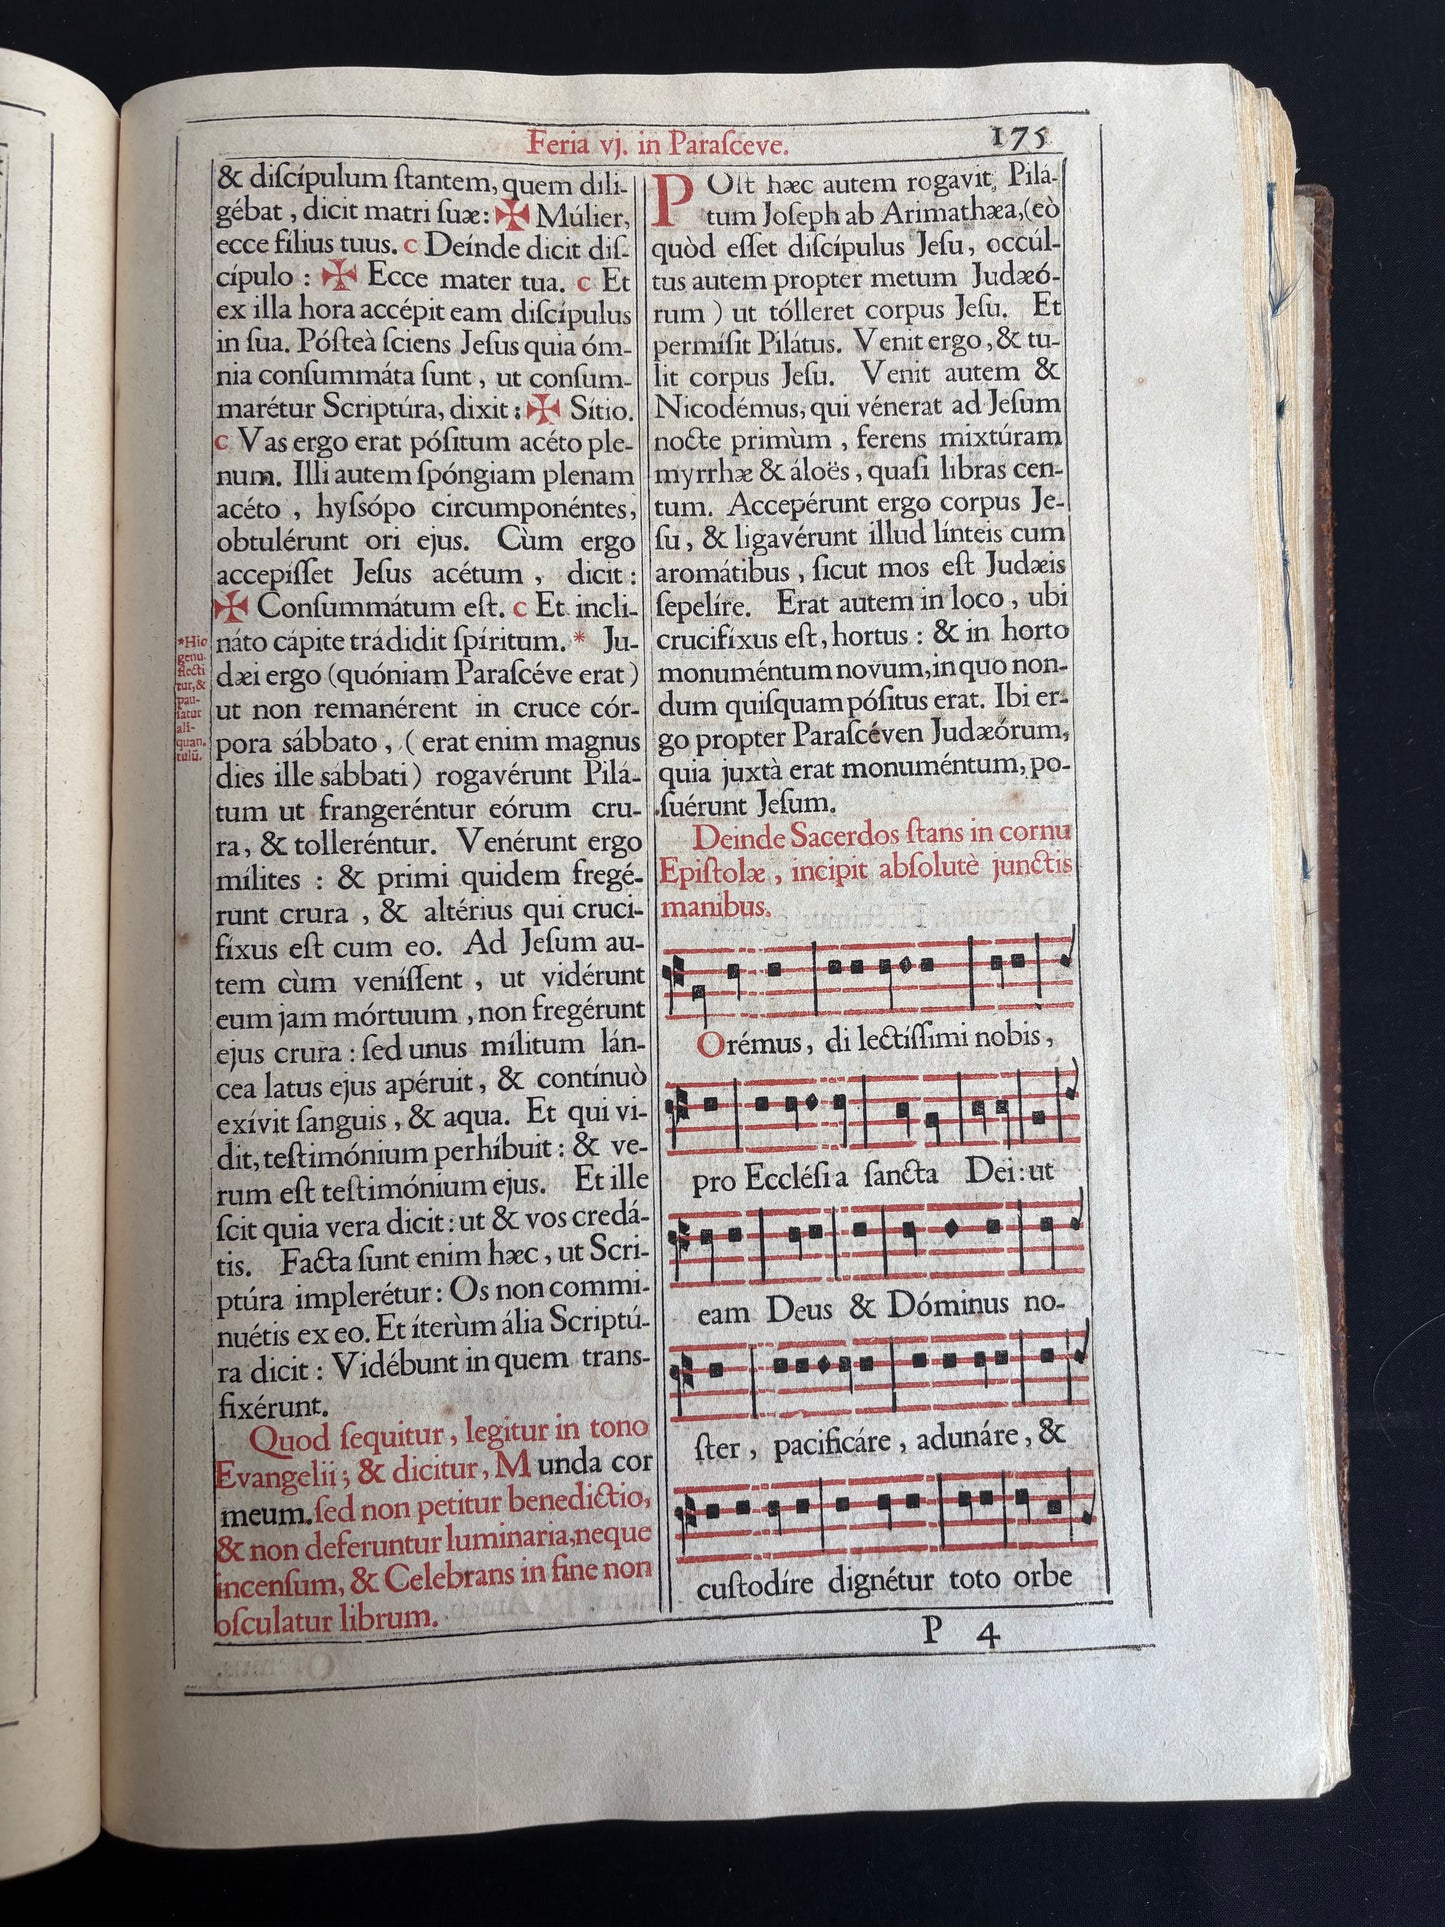 Feria vj. in Paraſceve.
175
& diſcípulum ſtantem, quem dili-
gébat, dicit matri ſuæ: ✠ Múlier,
ecce filius tuus. c Deínde dicit diſ-
cípulo : ✠ Ecce mater tua. c Et
ex illa hora accépit eam diſcípulus
in ſua. Póſteà ſciens Jeſus quia óm-
nia conſummáta ſunt, ut conſum-
marétur Scriptúra, dixit: ✠ Sítio.
c Vas ergo erat póſitum acéto ple-
num. Illi autem ſpóngiam plenam
acéto, hyſsópo circumponéntes,
obtulérunt ori ejus. Cùm ergo
accepíſſet Jeſus acétum, dicit:
✠ Conſummátum eſt. c Et incli-
náto cápite trádidit ſpíritum. * Ju-
dæi ergo (quóniam Paraſcéve erat)
ut non remanérent in cruce cór-
pora sábbato, (erat enim magnus
dies ille sabbati) rogavérunt Pilá-
tum ut frangeréntur eórum cru-
ra, & tolleréntur. Venérunt ergo
mílites : & primi quidem fregé-
runt crura, & altérius qui cruci-
fíxus eſt cum eo. Ad Jeſum au-
tem cùm veníſſent, ut vidérunt
eum jam mórtuum, non fregérunt
ejus crura : ſed unus mílitum lán-
cea latus ejus apéruit, & contínuò
exívit ſanguis, & aqua. Et qui vi-
dit, teſtimónium perhíbuit : & ve-
rum eſt teſtimónium ejus. Et ille
ſcit quia vera dicit: ut & vos credá-
tis. Facta ſunt enim hæc, ut Scri-
ptúra implerétur: Os non commi-
nuétis ex eo. Et íterùm ália Scriptú-
ra dicit : Vidébunt in quem trans-
fixérunt.
Quod ſequitur, legitur in tono
Evangelii; & dicitur, Munda cor
meum. ſed non petitur benedictio,
& non deferuntur luminaria, neque
incenſum, & Celebrans in fine non
oſculatur librum.
*Hic
genu-
flecti
tur, &
pau-
ſatur
ali-
quan-
tulũ.
POſt hæc autem rogavit, Pilá-
tum Joſeph ab Arimathæa, (eò
quòd eſſet diſcípulus Jeſu, occúl-
tus autem propter metum Judæó-
rum) ut tólleret corpus Jeſu. Et
permíſit Pilátus. Venit ergo, & tu-
lit corpus Jeſu. Venit autem &
Nicodémus, qui vénerat ad Jeſum
nocte primùm, ferens mixtúram
myrrhæ & áloës, quaſi libras cen-
tum. Accepérunt ergo corpus Je-
ſu, & ligavérunt illud línteis cum
aromátibus, ſicut mos eſt Judæis
ſepelíre. Erat autem in loco, ubi
crucifíxus eſt, hortus : & in horto
monuméntum novum, in quo non-
dum quiſquam póſitus erat. Ibi er-
go propter Paraſcéven Judæórum,
quia juxtà erat monuméntum, po-
ſuérunt Jeſum.
Deinde Sacerdos ſtans in cornu
Epiſtolæ, incipit abſolutè junctis
manibus.
Orémus, di lectíſſimi nobis,
pro Eccléſia ſancta Dei: ut
eam Deus & Dóminus no-
ſter, pacificáre, adunáre, &
cuſtodíre dignétur toto orbe
P 4